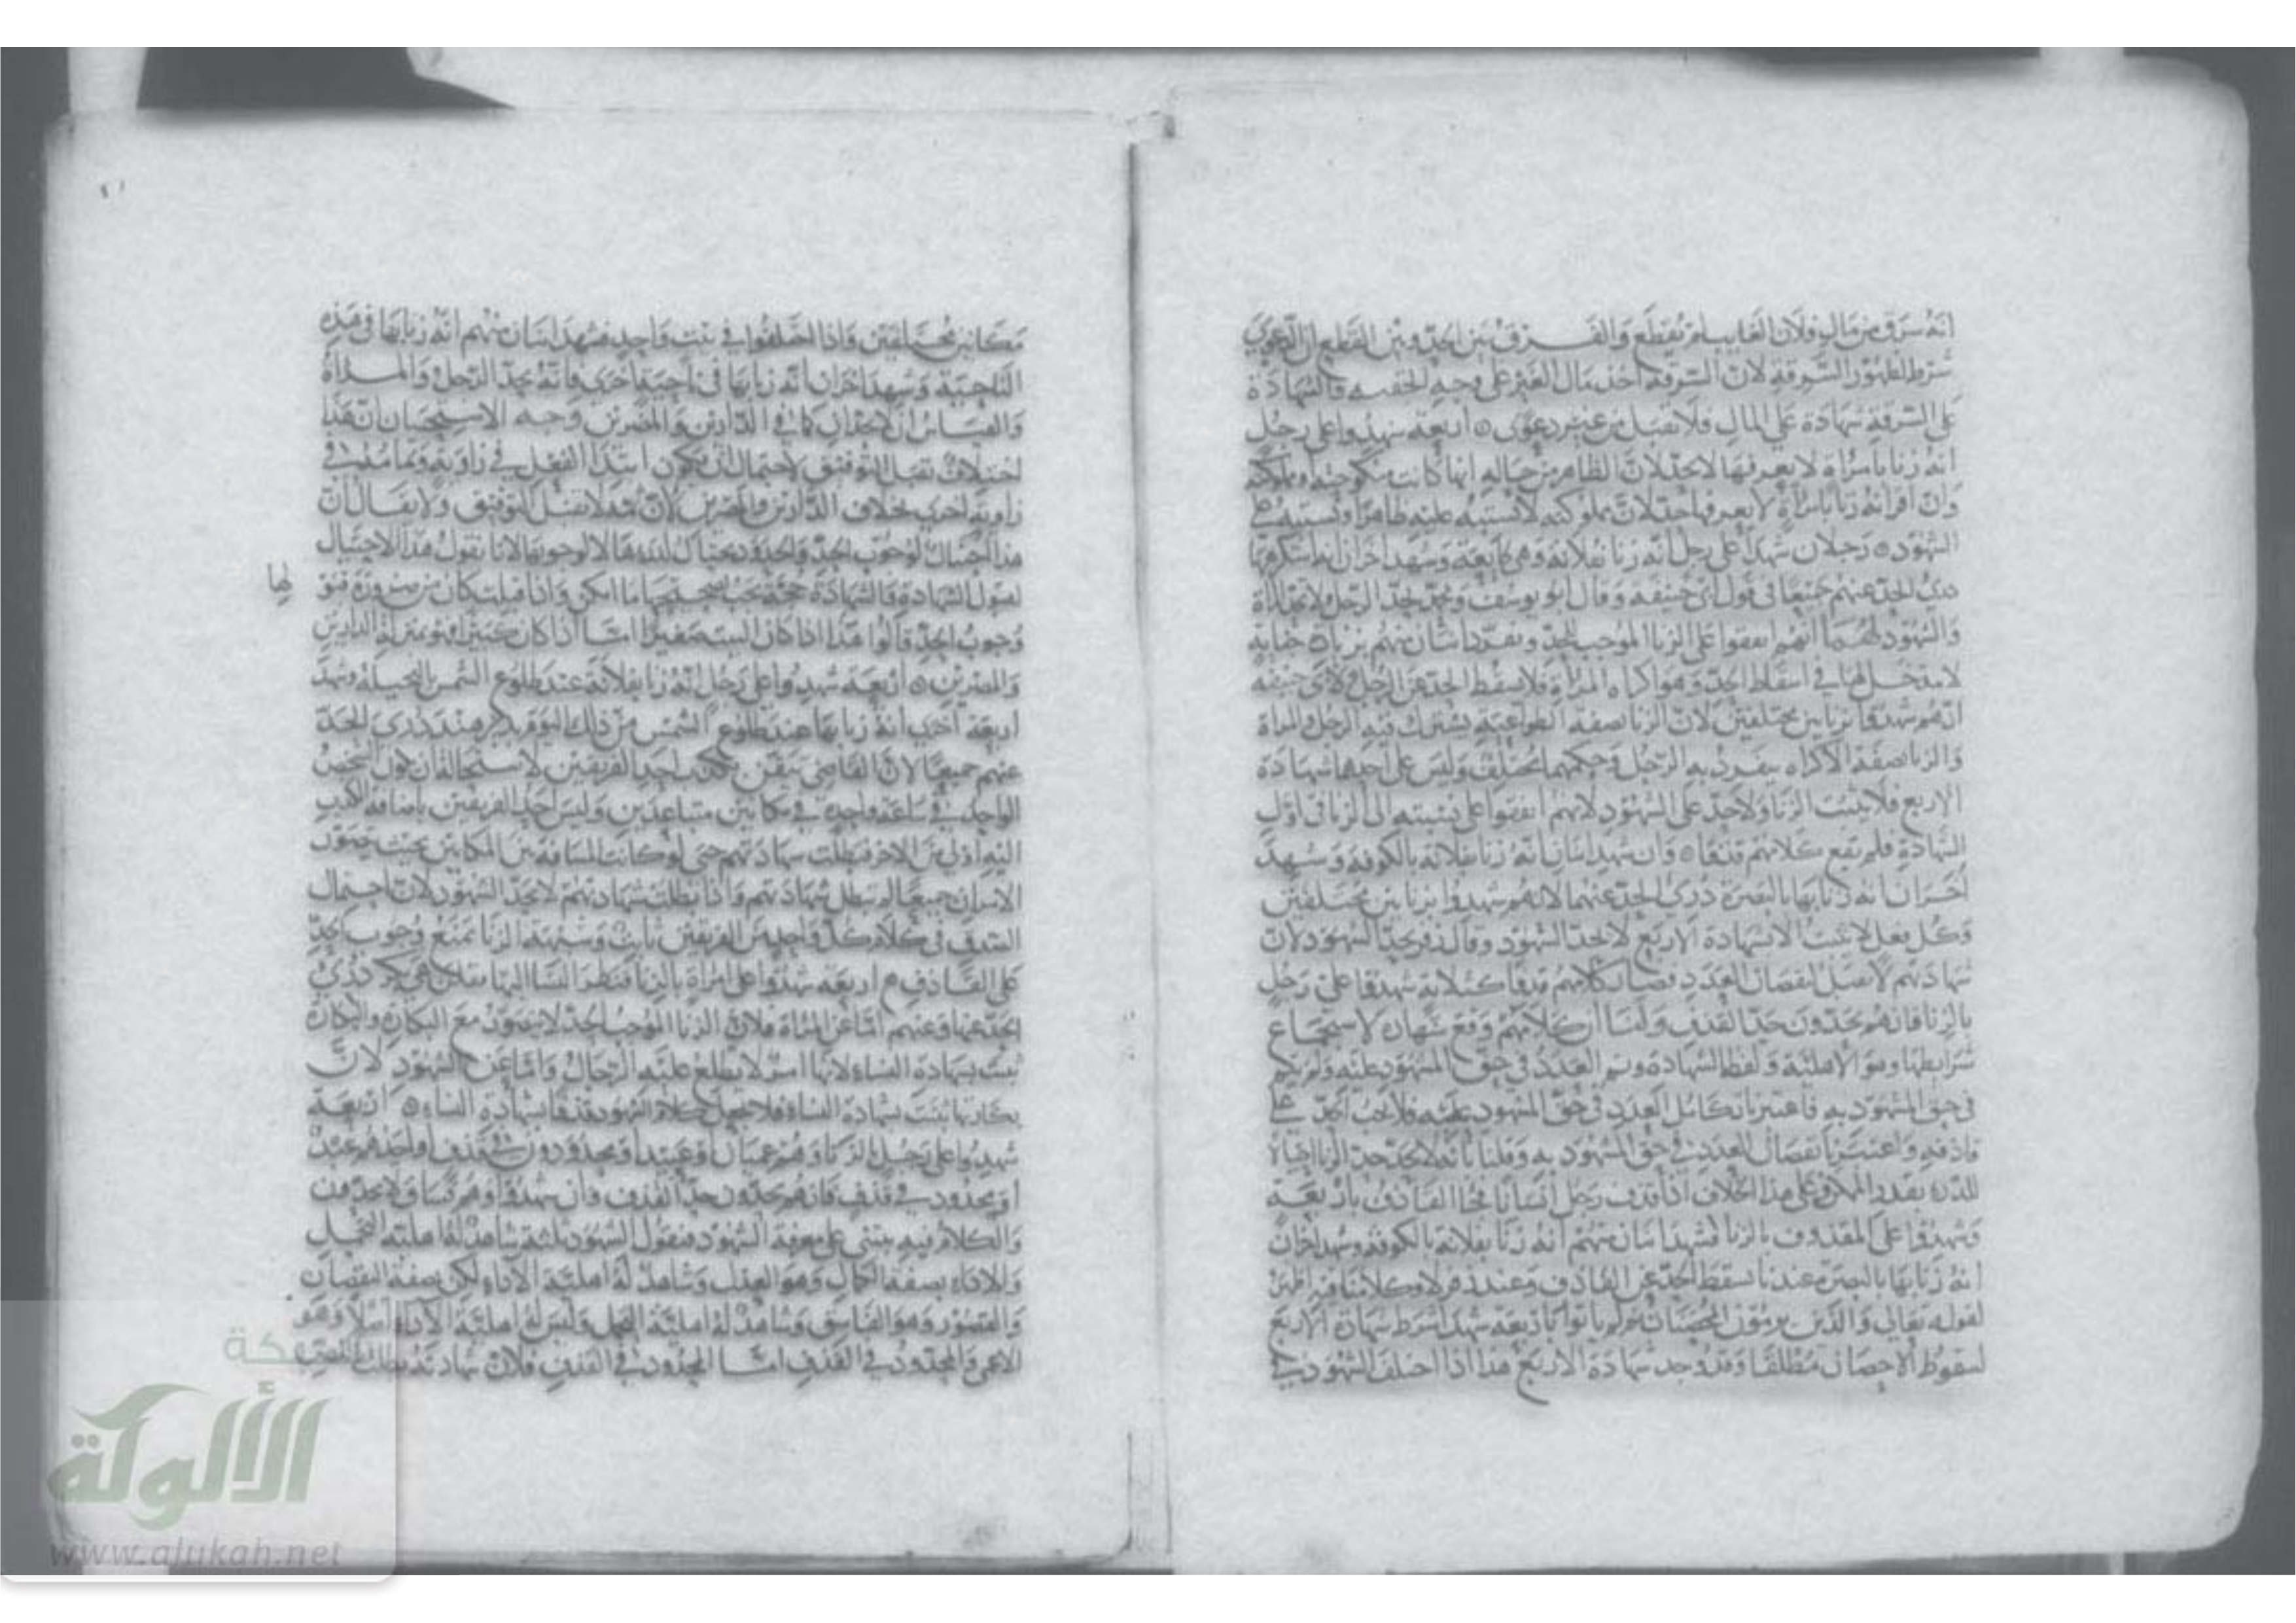 انه سرق من مال فلان الغايب لم يقطع والفرق بين الحد وبين القطع ان الدعوى
شرط لظهور السرقة لان السرقة اخذ مال الغير على وجه الخفيه فالشهادة
على السرقة شهادة على المال فلا تقبل من غير دعوى ٥ اربعة شهدوا على رجل
انه زنا بامراة لا يعرفها لا يحد لان الظاهر من حاله انها كانت منكوحته او مملوكته
وان اقر انه زنا بامراة لا يعرفها حد لان مملوكته لا تشتبه عليه ظاهرا وتشتبه على
الشهود ٥ رجلان شهدا على رجل انه زنا بفلانة وهي طايعة وشهد اخران انه استكرهها
درئ الحد عنهم جميعا في قول ابي حنيفه وقال ابو يوسف ومحمد يحد الرجل لا المراة
والشهود لهما انهم اتفقوا على الزنا الموجب للحد وتفرد اثنان منهم بزيادة جناية
لا مدخل لها في اسقاط الحد وهو اكراه المراة فلا يسقط الحد عن الرجل لابي حنيفة
انهم شهدوا بزنايين مختلفين لان الزنا صفة الطواعية يشترك فيه الرجل والمراة
والزنا صفة الاكراه يتفرد به الرجل وحكمهما مختلف وليس على احدهما شهادة
الاربع فلا يثبت الزنا ولا حد على الشهود لانهم اتفقوا على نسبته الى الزنا في اول
الشهادة فلم يقع كلامهم قذفا ٥ وان شهد اثنان انه زنا بفلانة بالكوفة وشهد
اخران انه زنا بها بالبصرة درئ الحد عنهما لانهم شهدوا بزنايين مختلفين
وكل فعل لا يثبت الا بشهادة الاربع لا يحد الشهود وقال زفر يحد الشهود لان
شهادتهم لا تقبل لنقصان العدد فصار كلامهم قذفا كثلاثة شهدوا على رجل
بالزنا فانهم يحدون حد القذف ولنا ان كلامهم وقع شهادة لاستجماع
شرايطها وهو الاهلية ولفظ الشهادة وتم العدد في حق المشهود عليه ولم يتم
في حق المشهود به فاعتبرنا تكامل العدد في حق المشهود عليه فلا يجب الحد على
قاذفه واعتبرنا نقصان العدد في حق المشهود به وقلنا بانه لا يحد حد الزنا احتيالا
للدرء بقدر الممكن وعلى هذا الخلاف اذا قذف رجل انسانا فجا القاذف باربعة
وشهدوا على المقذوف بالزنا فشهد اثنان منهم انه زنا بفلانة بالكوفة وشهد اخران
انه زنا بها بالبصرة عندنا يسقط الحد عن القاذف وعند زفر لا وكلامنا فيه اظهر
لقوله تعالى والذين يرمون المحصنات ثم لم ياتوا باربعة شهدا شرط شهادة الاربع
لسقوط الاحصان مطلقا وقد وجد شهادة الاربع هذا اذا اختلف الشهود في
مكانين مختلفين واذا اختلفوا في بيت واحد فشهد اثنان منهم انه زنا بها في هذه
الناحية وشهد اخران انه زنا بها في ناحية اخرى فانه يحد الرجل والمراة
والقياس ان لا يحدان كما في الدارين والمصرين وجه الاستحسان ان هذا
اختلاف تقبل التوفيق لاحتمال ان يكون ابتدا الفعل في زاوية وتمامه في
زاوية اخرى بخلاف الدارين والمصرين لان ثمه لا تقبل التوفيق ولا يقال بان
هذا احتيال لوجوب الحد والحدود يحتال لدرءها لا لوجوبها لانا نقول هذا الاحتيال
لقبول الشهادة والشهادة حجة يجب تصحيحها ما امكن واذا قبلت كان من ضرورة قبو
لها
وجوب الحد قالوا هذا اذا كان البيت صغيرا اما اذا كان كبيرا فهو بمنزلة الدارين
والمصرين ٥ اربعة شهدوا على رجل انه زنا بفلانة عند طلوع الشمس بالنخيلة وشهد
اربعة اخرى انه زنا بها عند طلوع الشمس من ذلك اليوم بدير هند درئ الحد
عنهم جميعا لان القاضي تيقن بكذب احد الفريقين لاستحالة ان يكون الشخص
الواحد في ساعة واحدة في مكانين متباعدين وليس احد الفريقين باضافة الكذب
اليه اولى من الاخر فبطلت شهادتهم حتى لو كانت المسافة بين المكانين بحيث يتصور
الامران جميعا لم تبطل شهادتهم واذا بطلت شهادتهم لا يحد الشهود لان احتمال
الصدق في كلام كل واحد من الفريقين ثابت وشبهة الزنا تمنع وجوب الحد
على القاذف ٥ اربعة شهدوا على امراة بالزنا فنظر النسا اليها فقلن هي بكر درئ
الحد عنها وعنهم اما عن المراة فلان الزنا الموجب للحد لا يتصور مع البكارة والبكارة
تثبت بشهادة النساء لانها امر لا يطلع عليه الرجال واما عن الشهود لان
بكارتها تثبت بشهادة النساء فلا يجعل كلام الشهود قذفا بشهادة النساء ٥ اربعة
شهدوا على رجل بالزنا وهم عميان او عبيد او محدودون في قذف او احدهم عبد
او محدود في قذف فانهم يحدون حد القذف وان شهدوا وهم فساق لا يحدون
والكلام فيه يبتنى على معرفة الشهود فنقول الشهود ثلثة شاهد له اهلية التحمل
والاداء بصفة الكمال وهو العدل وشاهد له اهلية الاداء لكن بصفة النقصان
والقصور وهو الفاسق وشاهد له اهلية التحمل وليس له اهلية الاداء اصلا وهو
الاعمى والمحدود في القذف اما المحدود في القذف فلان شهادته بطلت بالنص
الألوكة
www.alukah.net